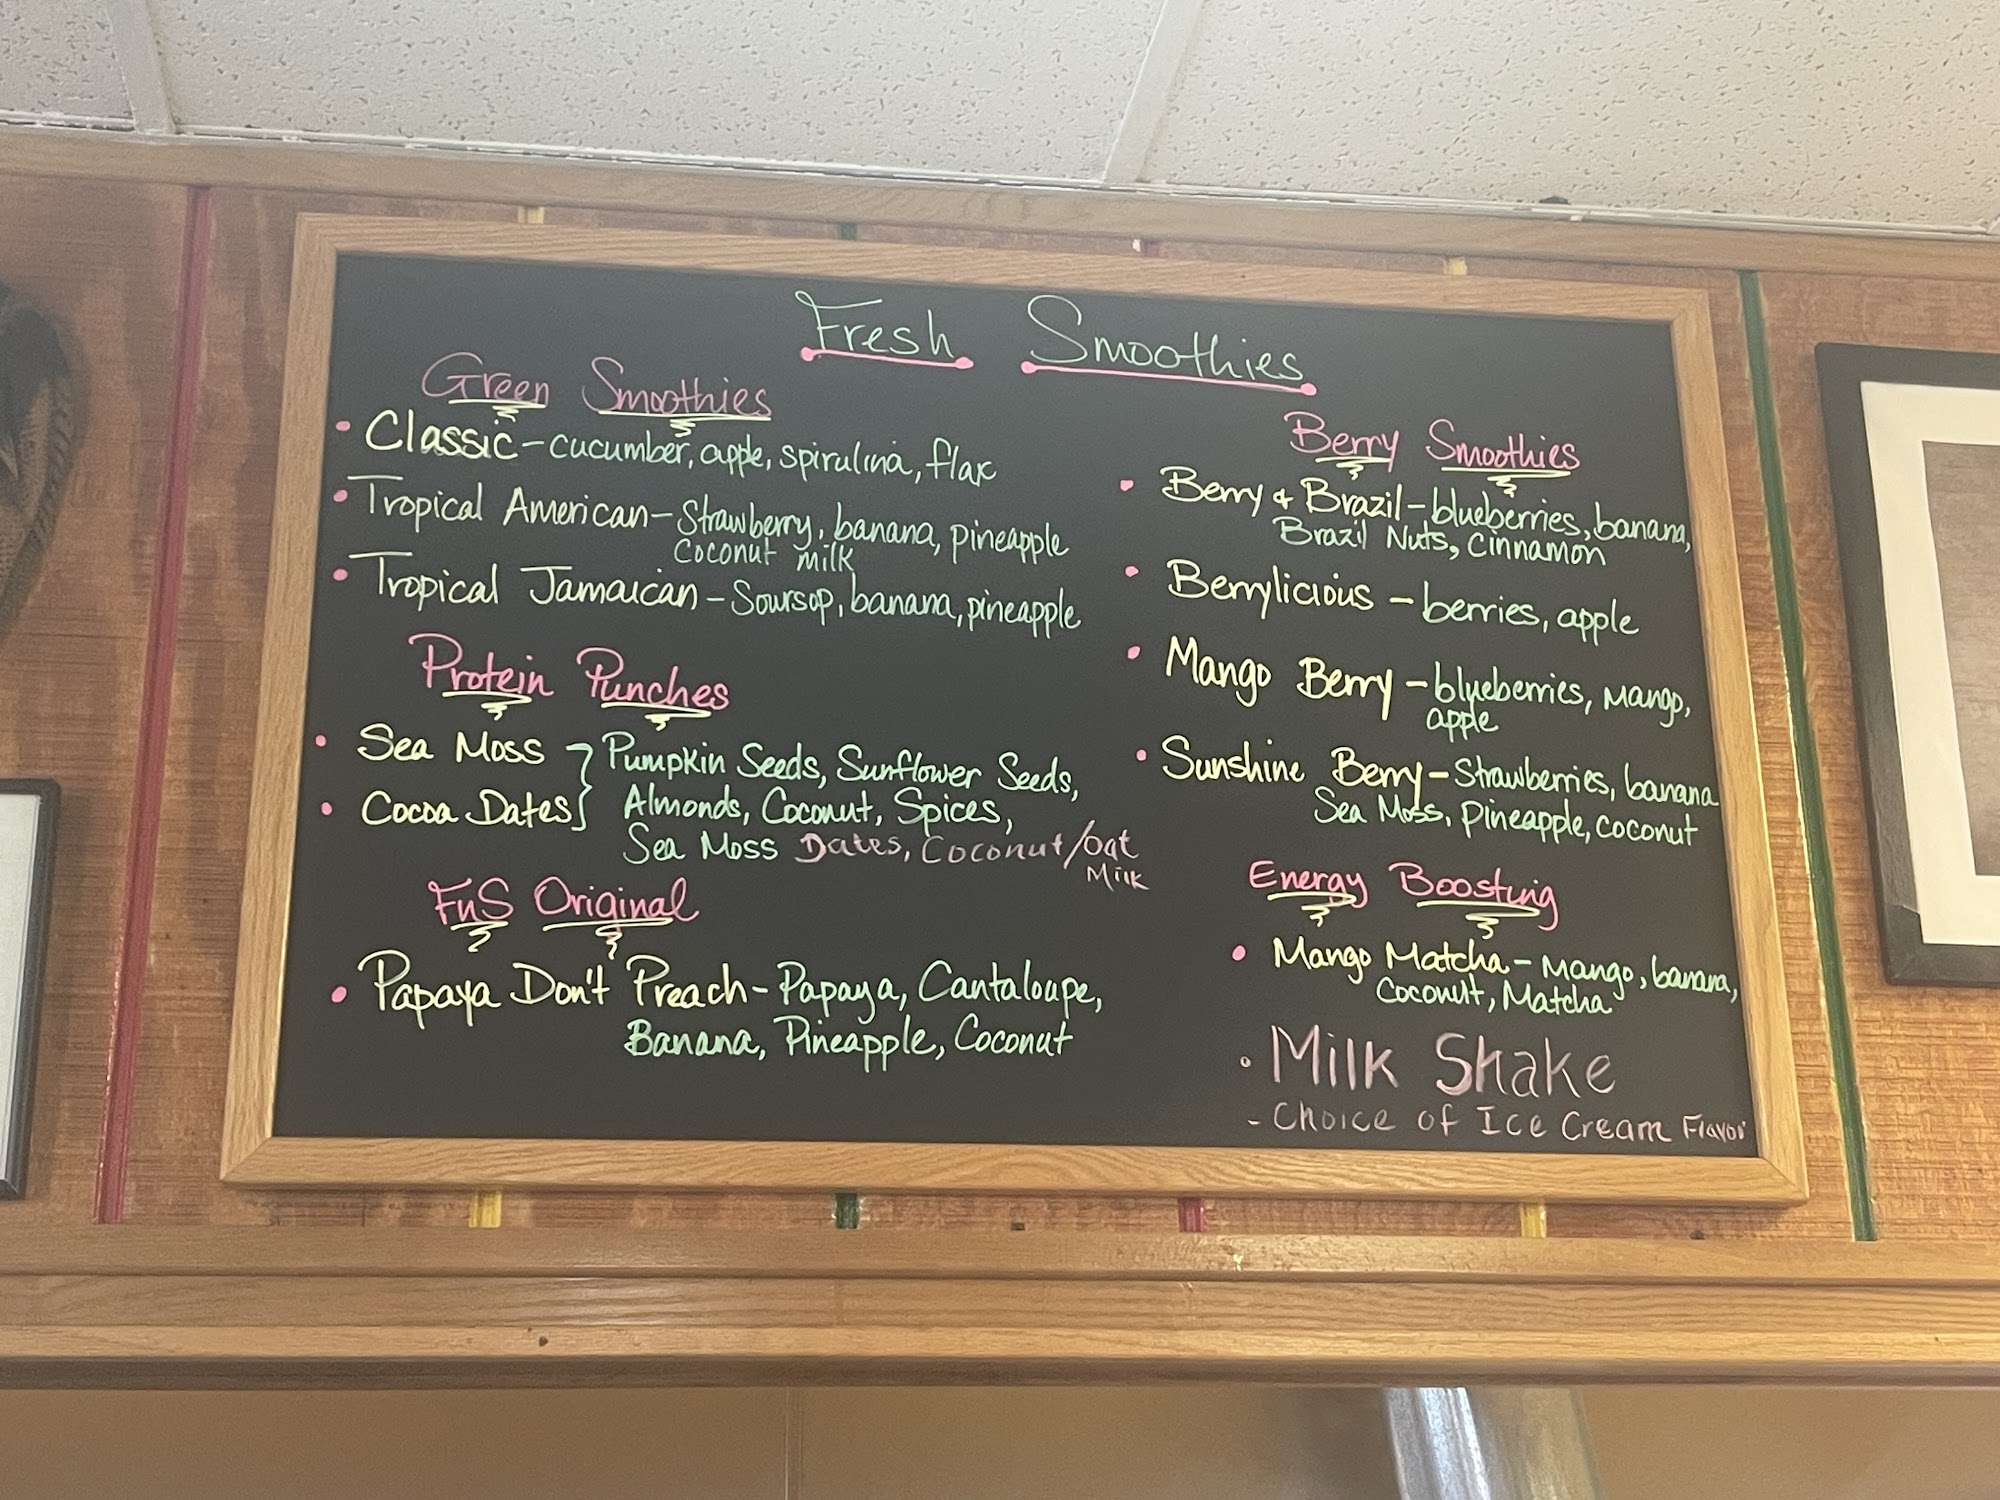 Fresh Smoothies
Green Smoothies
• Classic - cucumber, apple, spirulina, flax
• Tropical American - Strawberry, banana, pineapple
coconut milk
• Tropical Jamaican - Soursop, banana, pineapple
Protein Punches
• Sea Moss } Pumpkin Seeds, Sunflower Seeds,
• Cocoa Dates } Almonds, Coconut, Spices,
Sea Moss Dates, Coconut/oat
Milk
FnS Original
• Papaya Don't Preach - Papaya, Cantaloupe,
Banana, Pineapple, Coconut
Berry Smoothies
• Berry & Brazil - blueberries, banana,
Brazil Nuts, Cinnamon
• Berrylicious - berries, apple
• Mango Berry - blueberries, Mango,
apple
• Sunshine Berry - Strawberries, banana
Sea Moss, pineapple, coconut
Energy Boosting
• Mango Matcha - Mango, banana,
Coconut, Matcha
• Milk Shake
- Choice of Ice Cream Flavor